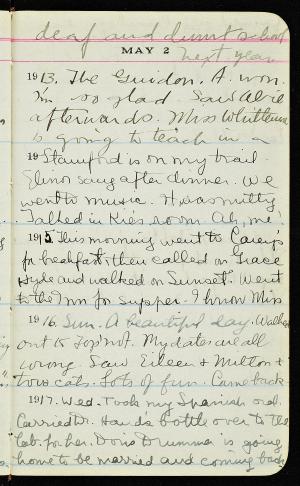 deaf and dumb school
MAY 2
next year
1913. The Guidon. A. won.
I'm so glad. Saw
afterwards. Miss
is going to teach in a
19 Stamford is on my trail
Elinor sang after dinner. We
went to music. H. was
Talked in room Ah, me!
1915 This morning went to Carey's
for breakfast, then called on Grace
Hyde and walked on Sunset. Went
to the Inn for supper. I know Miss
1916. Sun. A beautiful day. Walked
out to. My dates are all
wrong. Saw Eileen & Milton &
two cats. Lots of fun. Came back
1917. Wed. Took my Spanish oral.
Carried Dr. bottle over to the
lab. for her. Doris is going
home to be married and coming back